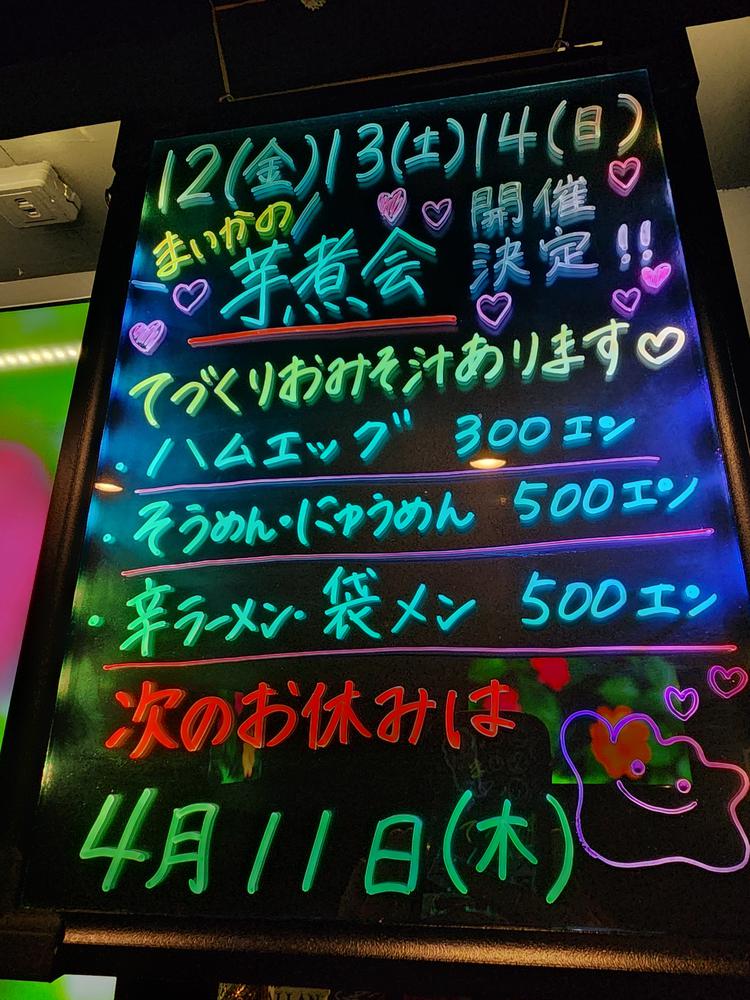 12(金)13(土)14(日)
まいかの
芋煮会
開催
決定!!
てづくりおみそ汁あります♡
・ハムエッグ 300エン
・そうめん・にゅうめん 500エン
・辛ラーメン・袋メン 500エン
次のお休みは
4月11日(木)